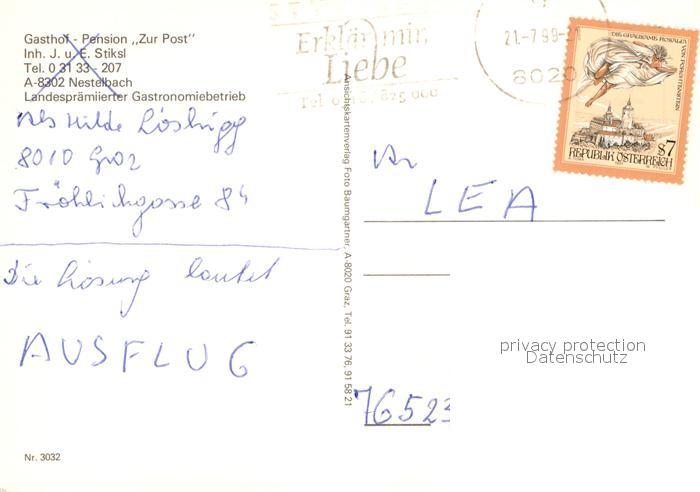 Gasthof - Pension „Zur Post"
Inh. J. u. E. Stiksl
Tel. 0 31 33 - 207
A-8302 Nestelbach
Landesprämiierter Gastronomiebetrieb
Hilde
8010 Graz
Fröhlichgasse 84
Die Lösung lautet
AUSFLUG
Nr. 3032
Ansichtskartenverlag Foto Baumgartner, A-8020 Graz, Tel. 91 33 76, 91 58 21
Erklär mir
Liebe
21.-7.99-
8020
DIE GRAUSAME ROSALIA VON FORCHTENSTEIN
S7
REPUBLIK ÖSTERREICH
An
LEA
privacy protection
Datenschutz
7652